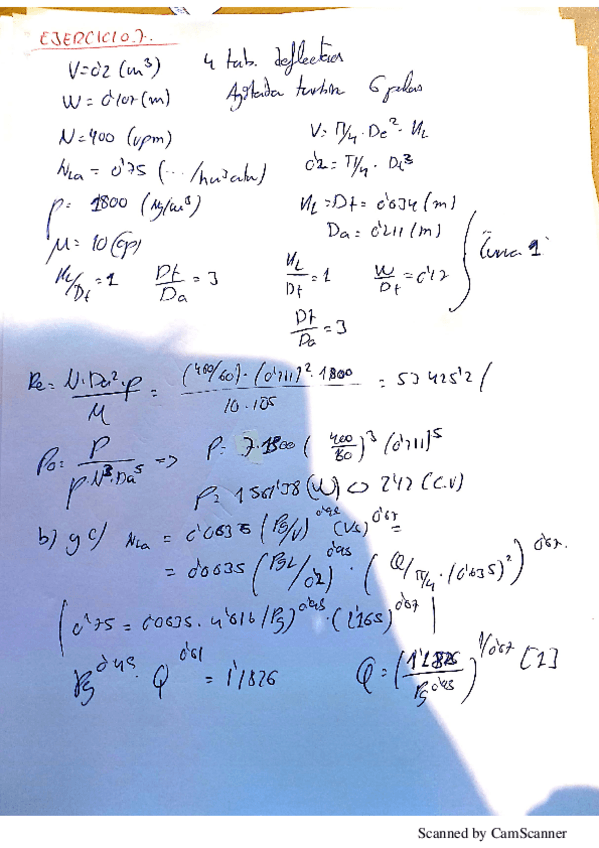 EJERCICIO 7.
V=0'2 (m³) 4 tab. deflectoras
W = 0'107 (m) Agitador turbina 6 palas
N=400 (rpm) V= π/4 · De² · HL
NLa = 0'75 (... / ) 0'2 = π/4 · Dt³
ρ= 1800 (kg/m³) HL = Dt = 0'634 (m)
Da = 0'211 (m)
μ= 10 (cp)
HL/Dt = 1 Dt/Da = 3 HL/Dt = 1 W/Dt = 0'17 Curva 1
Dt/Da = 3
Re = N·Da²·ρ/μ = (400/60)·(0'211)²·1800 / 10·10⁵ = 53425'2
Po = P/ρ·N³·Da⁵ => P= 7·1800 (400/60)³ (0'211)⁵
P= 1561'38 (W) <=> 2'12 (C.V)
b) y c) NLa = 0'0635 (Pg/V)^0'95 (Vs)^0'67 =
= 0'0635 (Pg/0'2)^0'95 · (Q/π/4 · (0'635)²)^0'67.
(0'75 = 0'0635 · 4'616 (Pg)^0'95 · (2'165)^0'67)
Pg^0'95 · Q^0'67 = 1'1826 Q = (1'1826/Pg^0'95)^1/0'67 [1]
Scanned by CamScanner